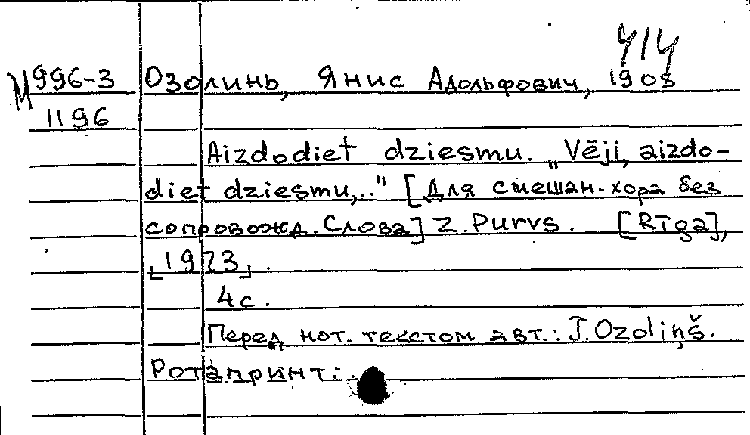 414
М996-3 Озолинь, Янис Адольфович, 1908
1196
Aizdodiet dziesmu. „Vēji, aizdo-
diet dziesmu,.." [Для смешан. хора без
сопровожд. Слова] Z. Purvs. [Rīga],
[1973].
4 с.
Перед нот. текстом авт.: J. Ozoliņš.
Ротапринт.